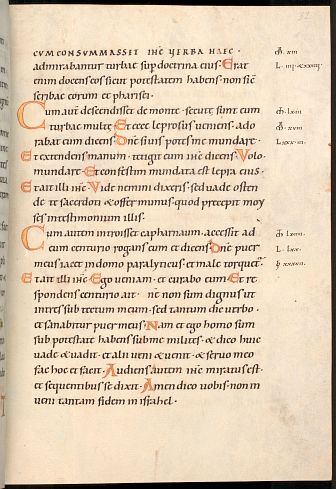 CVM CONSVMMASSET IHC VERBA HAEC.
admirabantur turbae sup doctrina eius. Erat
enim docens eos sicut potestatem habens. non sic
scribae eorum et pharisei.
Cum aut descendisset de monte. secute sunt eum
turbae multe. Et ecce leprosus veniens. ado
rabat eum dicens. Dne si uis potes me mundare.
Et extendens manum. tetigit eum ihc dicens. Volo.
mundare. Et confestim mundata est lepra eius.
Et ait illi ihc. Vide nemini dixeris. sed uade osten
de te sacerdoti & offer munus quod precepit moy
ses in testimonium illis.
Cum autem introisset capharnaum. accessit ad
eum centurio rogans eum et dicens. Dne puer
meus iacet in domo paralyticus et male torquet.
Et ait illi ihc. Ego ueniam. et curabo eum. Et re
spondens centurio ait. ne non sum dignus ut
intres sub tectum meum. sed tantum dic uerbo.
et sanabitur puer meus. Nam et ego homo sum
sub potestate habens sub me milites. & dico huic
uade & uadit. et alii ueni & uenit. & seruo meo
fac hoc et facit. Audiens autem ihc miratus est.
et sequentibus se dixit. Amen dico uobis. non in
ueni tantam fidem in israhel.